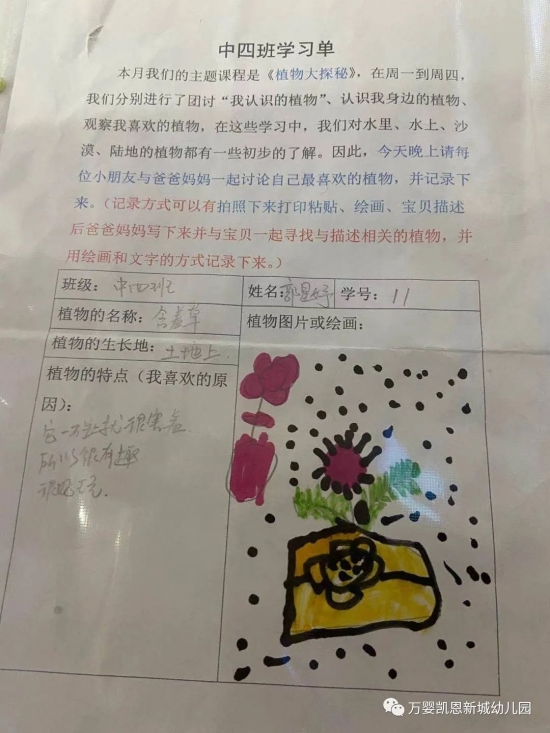 中四班学习单
本月我们的主题课程是《植物大探秘》，在周一到周四，
我们分别进行了团讨“我认识的植物”、认识我身边的植物、
观察我喜欢的植物，在这些学习中，我们对水里、水上、沙
漠、陆地的植物都有一些初步的了解。因此，今天晚上请每
位小朋友与爸爸妈妈一起讨论自己最喜欢的植物，并记录下
来。（记录方式可以有拍照下来打印粘贴、绘画、宝贝描述
后爸爸妈妈写下来并与宝贝一起寻找与描述相关的植物，并
用绘画和文字的方式记录下来。）
班级：中四班 姓名：郭星妤 学号：11
植物的名称：含羞草 植物图片或绘画：
植物的生长地：土地上.
植物的特点（我喜欢的原
因）：
它一不些就很害羞.
所以很有趣
万婴凯恩新城幼儿园